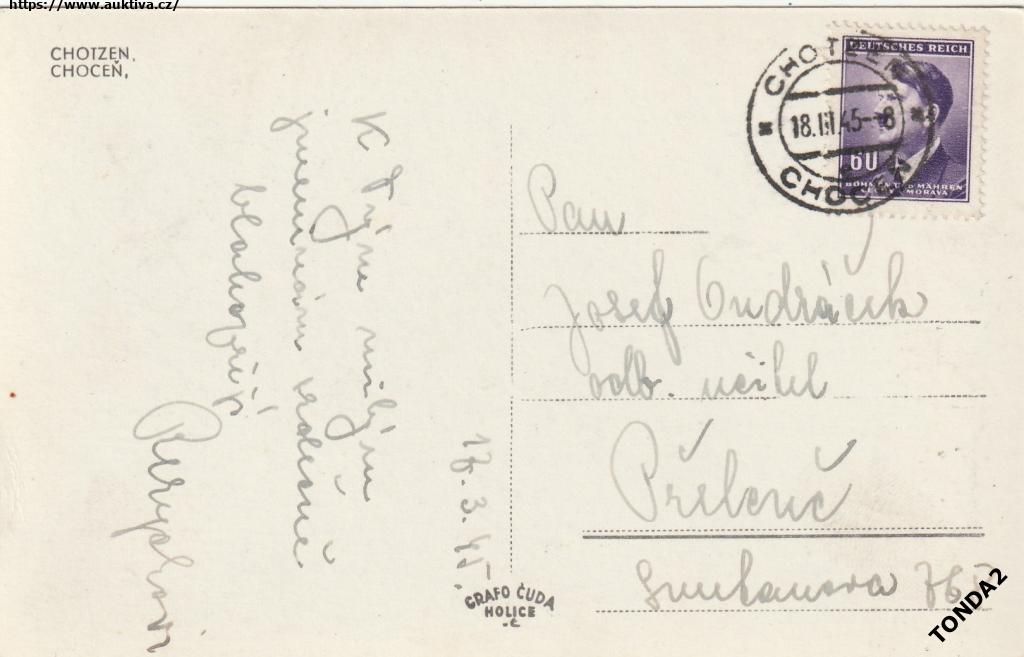 https://www.auktiva.cz/
CHOTZEN,
CHOCEŇ,
K Tvým milým
jmeninám srdečně
blahopřejí
17.3.45.
GRAFO ČUDA
HOLICE
CHOTZEN
18.III.45-18
CHOCEŇ
DEUTSCHES REICH
60
BÖHMEN UND MÄHREN
MORAVA
Pan
Josef Ondráček
odb. učitel
Přelouč
TONDA2